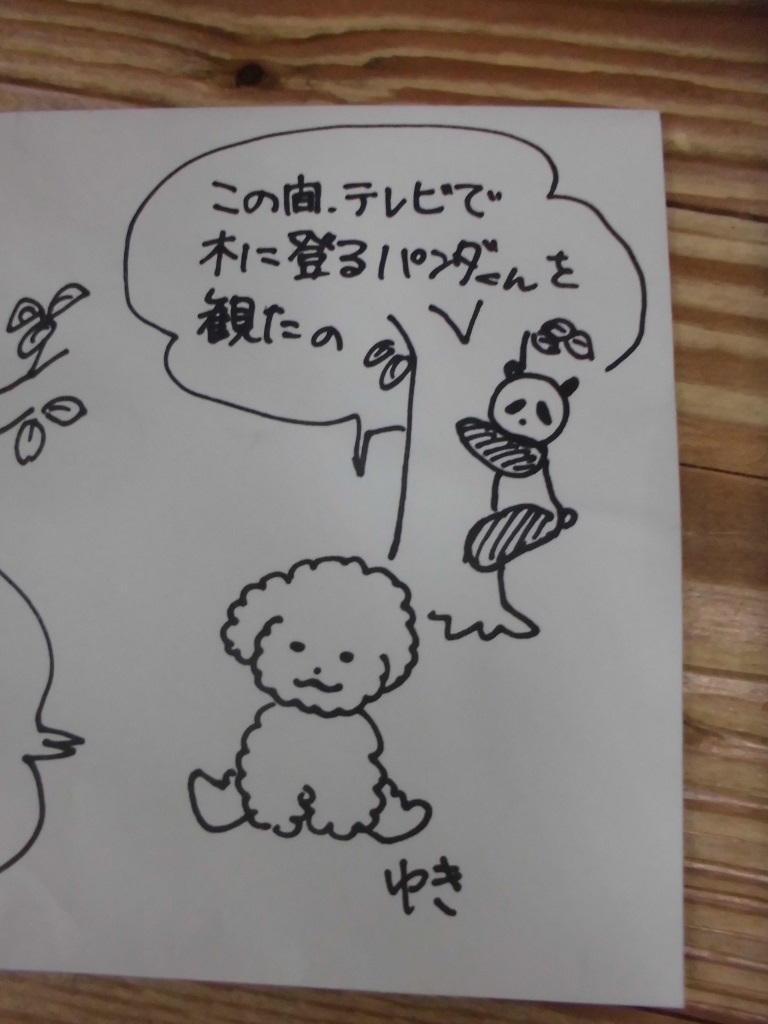 この間、テレビで
木に登るパンダくんを
観たの
ゆき